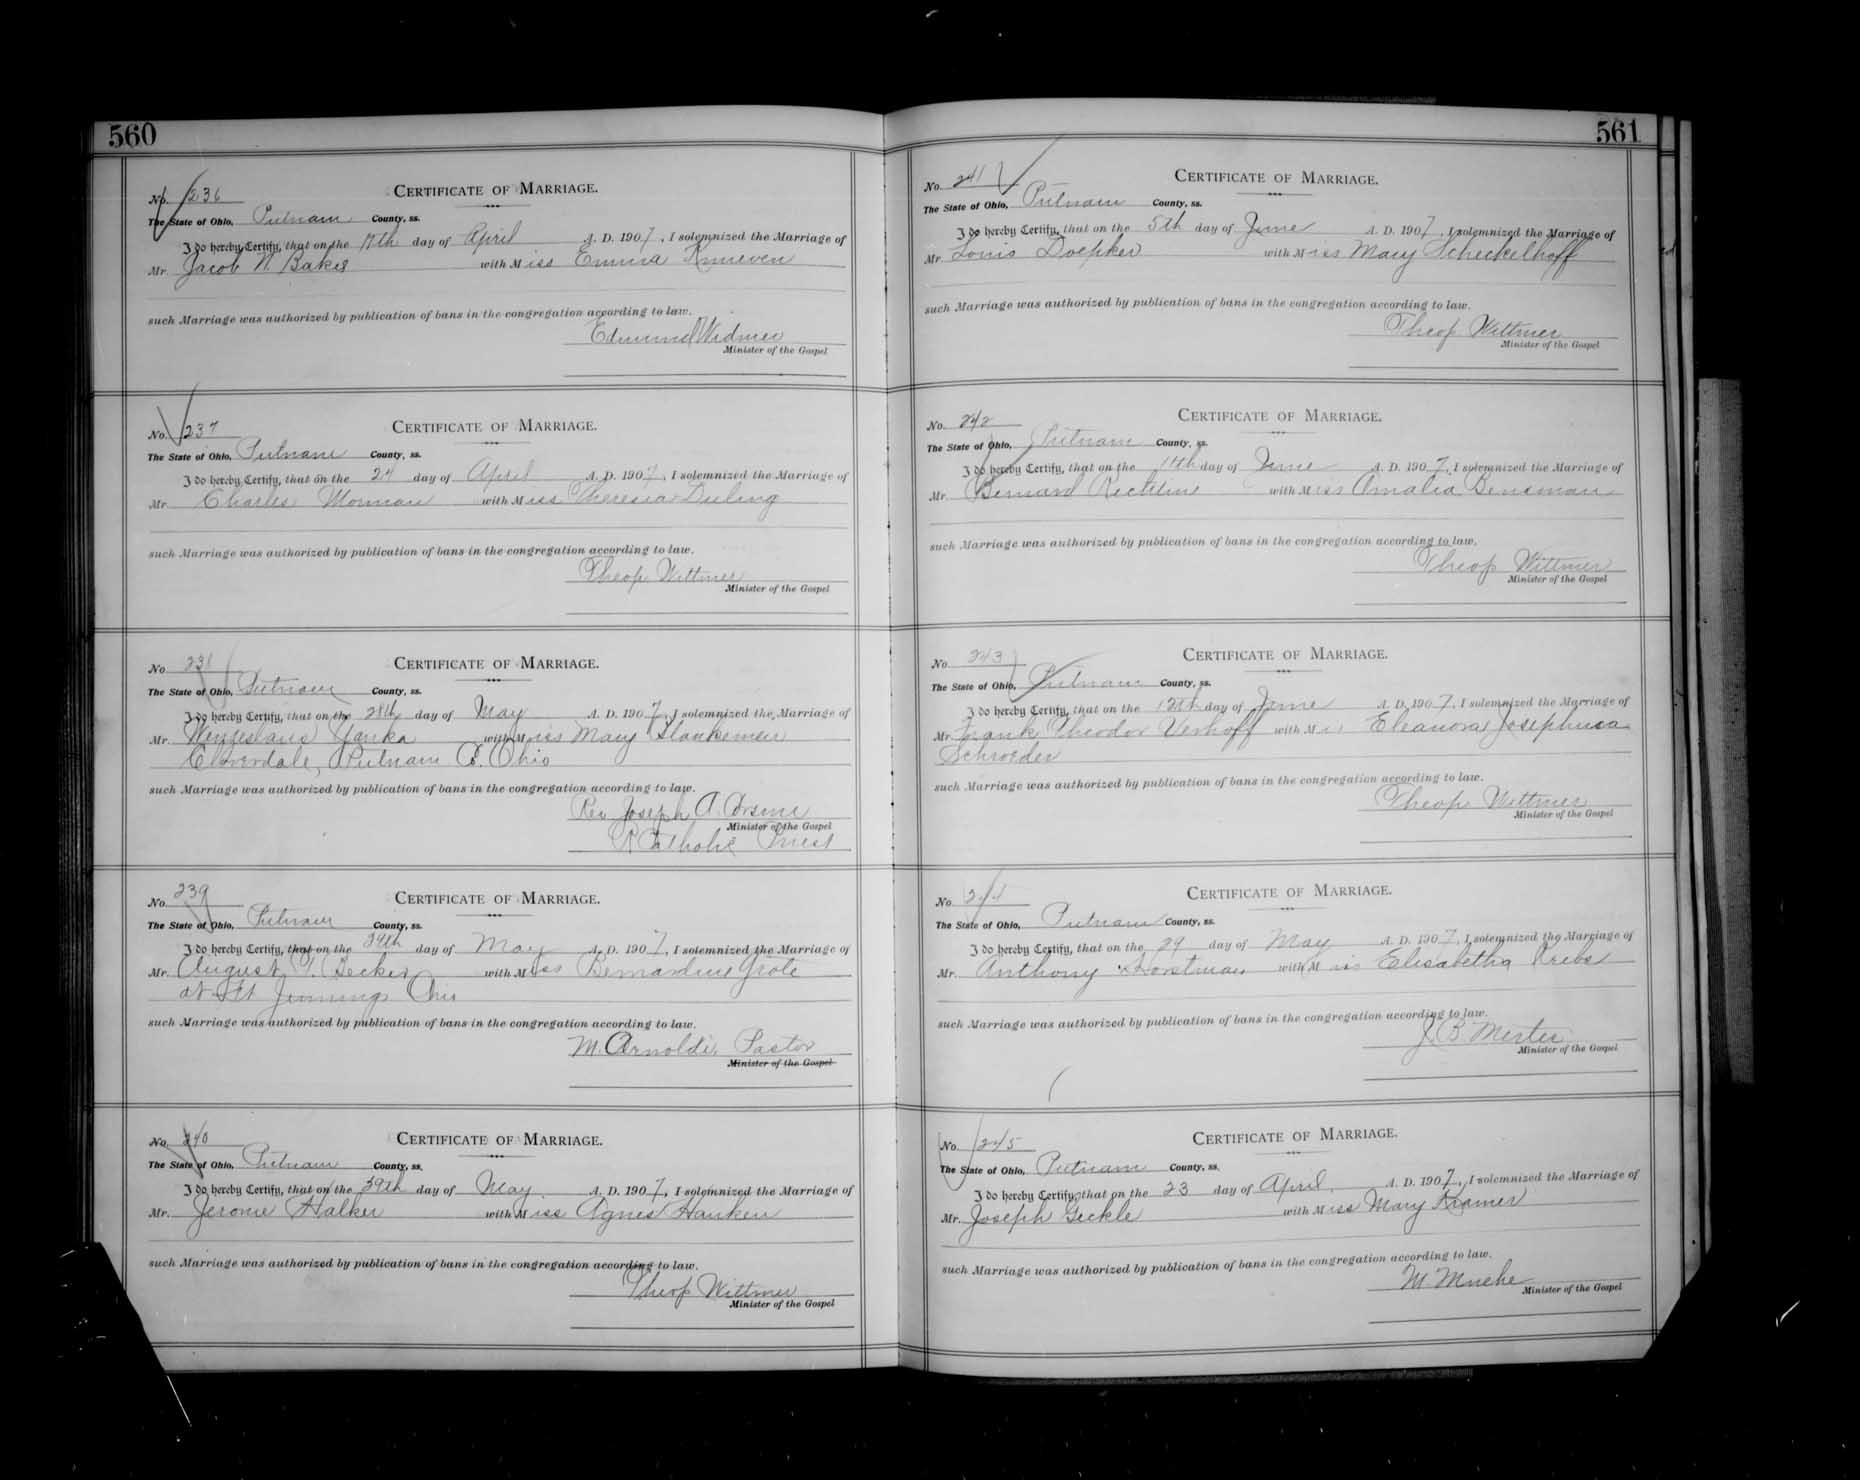 560
No. 236
CERTIFICATE OF MARRIAGE.
The State of Ohio, Putnam County, ss.
I do hereby Certify, that on the 17th day of April A. D. 1907, I solemnized the Marriage of
Mr. Jacob N. Baker with Miss Emma Knueven
such Marriage was authorized by publication of bans in the congregation according to law.
Edmund Widmer
Minister of the Gospel
No. 237
CERTIFICATE OF MARRIAGE.
The State of Ohio, Putnam County, ss.
I do hereby Certify, that on the 24 day of April A. D. 1907, I solemnized the Marriage of
Mr. Charles Morman with Miss Theresia Duling
such Marriage was authorized by publication of bans in the congregation according to law.
Theop Wittmer
Minister of the Gospel
No. 238
CERTIFICATE OF MARRIAGE.
The State of Ohio, Putnam County, ss.
I do hereby Certify, that on the 28th day of May A. D. 1907, I solemnized the Marriage of
Mr. Wenzeslaus Yanka with Miss Mary
Cloverdale, Putnam Co. Ohio
such Marriage was authorized by publication of bans in the congregation according to law.
Rev Joseph A.
Minister of the Gospel
R Catholic Priest
No. 239
CERTIFICATE OF MARRIAGE.
The State of Ohio, Putnam County, ss.
I do hereby Certify, that on the 29th day of May A. D. 1907, I solemnized the Marriage of
Mr. August with Miss Bernardine Grote
at Ft Jennings Ohio
such Marriage was authorized by publication of bans in the congregation according to law.
M. Arnoldi, Pastor
Minister of the Gospel
No. 240
CERTIFICATE OF MARRIAGE.
The State of Ohio, Putnam County, ss.
I do hereby Certify, that on the 29th day of May A. D. 1907, I solemnized the Marriage of
Mr. Jerome Halker with Miss Agnes Hanken
such Marriage was authorized by publication of bans in the congregation according to law.
Theop Wittmer
Minister of the Gospel
561
No. 241
CERTIFICATE OF MARRIAGE.
The State of Ohio, Putnam County, ss.
I do hereby Certify, that on the 5th day of June A. D. 1907, I solemnized the Marriage of
Mr. Louis Doepker with Miss Mary Scheckelhoff
such Marriage was authorized by publication of bans in the congregation according to law.
Theop Wittmer
Minister of the Gospel
No. 242
CERTIFICATE OF MARRIAGE.
The State of Ohio, Putnam County, ss.
I do hereby Certify, that on the 11th day of June A. D. 1907, I solemnized the Marriage of
Mr. Bernard Recktine with Miss Amalia Bensman
such Marriage was authorized by publication of bans in the congregation according to law.
Theop Wittmer
Minister of the Gospel
No. 243
CERTIFICATE OF MARRIAGE.
The State of Ohio, Putnam County, ss.
I do hereby Certify, that on the 12th day of June A. D. 1907, I solemnized the Marriage of
Mr. Frank Theodor Verhoff with Mis Eleanora Josephina
Schroeder
such Marriage was authorized by publication of bans in the congregation according to law.
Theop Wittmer
Minister of the Gospel
No. 244
CERTIFICATE OF MARRIAGE.
The State of Ohio, Putnam County, ss.
I do hereby Certify, that on the 29 day of May A. D. 1907, I solemnized the Marriage of
Mr. Anthony Horstman with Miss Elisabetha Krebs
such Marriage was authorized by publication of bans in the congregation according to law.
J. B. Mertes
Minister of the Gospel
No. 245
CERTIFICATE OF MARRIAGE.
The State of Ohio, Putnam County, ss.
I do hereby Certify, that on the 23 day of April A. D. 1907, I solemnized the Marriage of
Mr. Joseph Geckle with Miss Mary Kramer
such Marriage was authorized by publication of bans in the congregation according to law.
M. Muehe
Minister of the Gospel